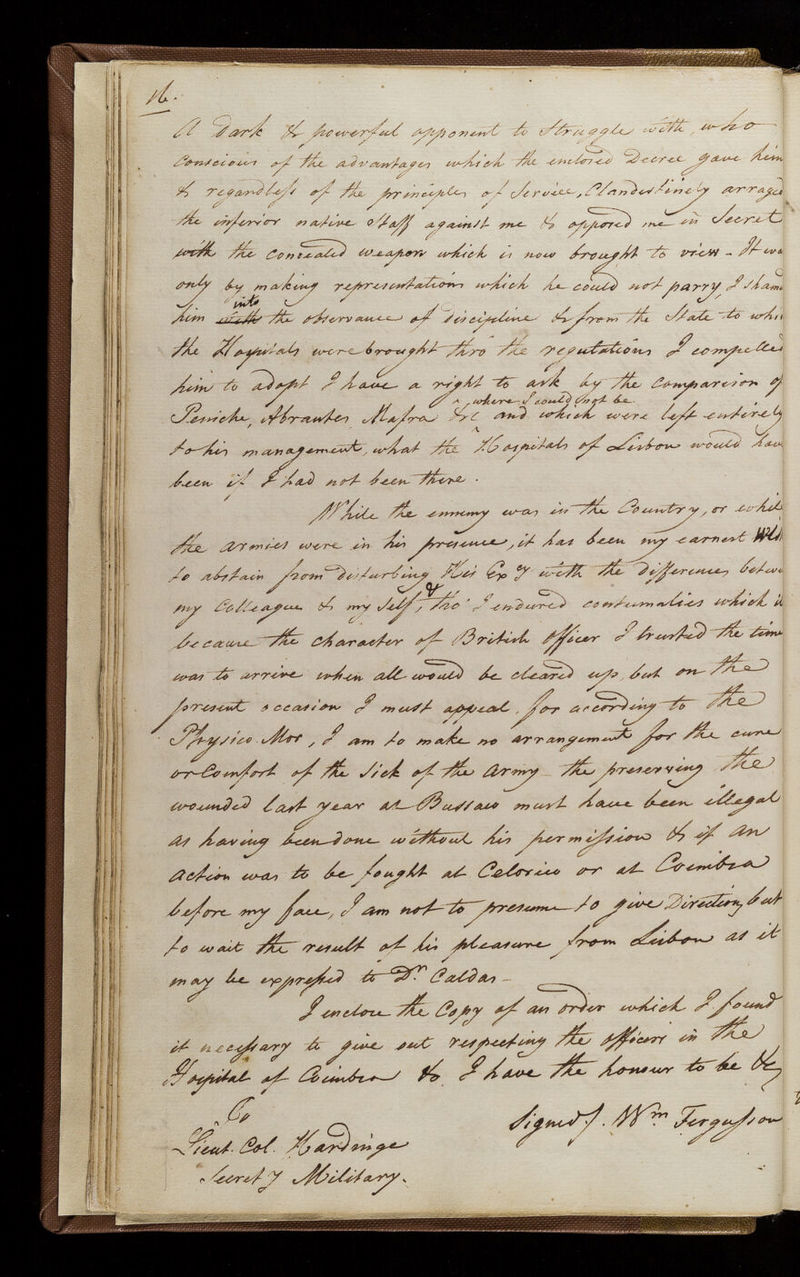 16.
A Dark & powerful opponent to Struggle with, who
conscious of the advantages which the enclosed Decree gave him
& regardless of the principles of Service, Clandestinely arraged
the inferior native Staff against me & opposed me in Secret
with the concealed weapon which is now brought to view - It was
only by making representations which he could not parry, I sham
him with into the observance of discipline & from the State to whi
the Hospitals were brought thro' the regulations I compelled
him to adopt I have a right to ask by the comparison of
Peniche, Abrantes, Mafra &c where I could not be and which were left entirely
to his management, what the Hospitals of Lisbon would have
been if I had not been there.
While the ennemy was in the Country, or whil
the armies were in his presence, it has been my earnest
to abstain from disturbing His Exy with the differences betwe
my Colleague & my Self, & tho' I endured contumalies which
because the character of British officer I trusted the time
was to arrive when all would be cleared up, but on the
present occasion I must appeal, for according to the
Physico Mor, I am to make no arrangement for the cure
or Comfort of the Sick of the Army the preserving the
wounded last year at Bussaco must have been illegal
as having been done without his permission & if an
action was to be fought at Celorico or at Coimbra
before my face, I am not to presume to give Direction, but
to wait the result of his pleasure from Lisbon as it
may be expressed to Dr. Caldas -
I enclose the Copy of an order which I found
it necessary to give out respecting the officers in the
Hospital of Coimbra & I have the honour to be &c
Signed. Wm Fergusson
To
Lieut. Col. Hardinge
Secrety Military.